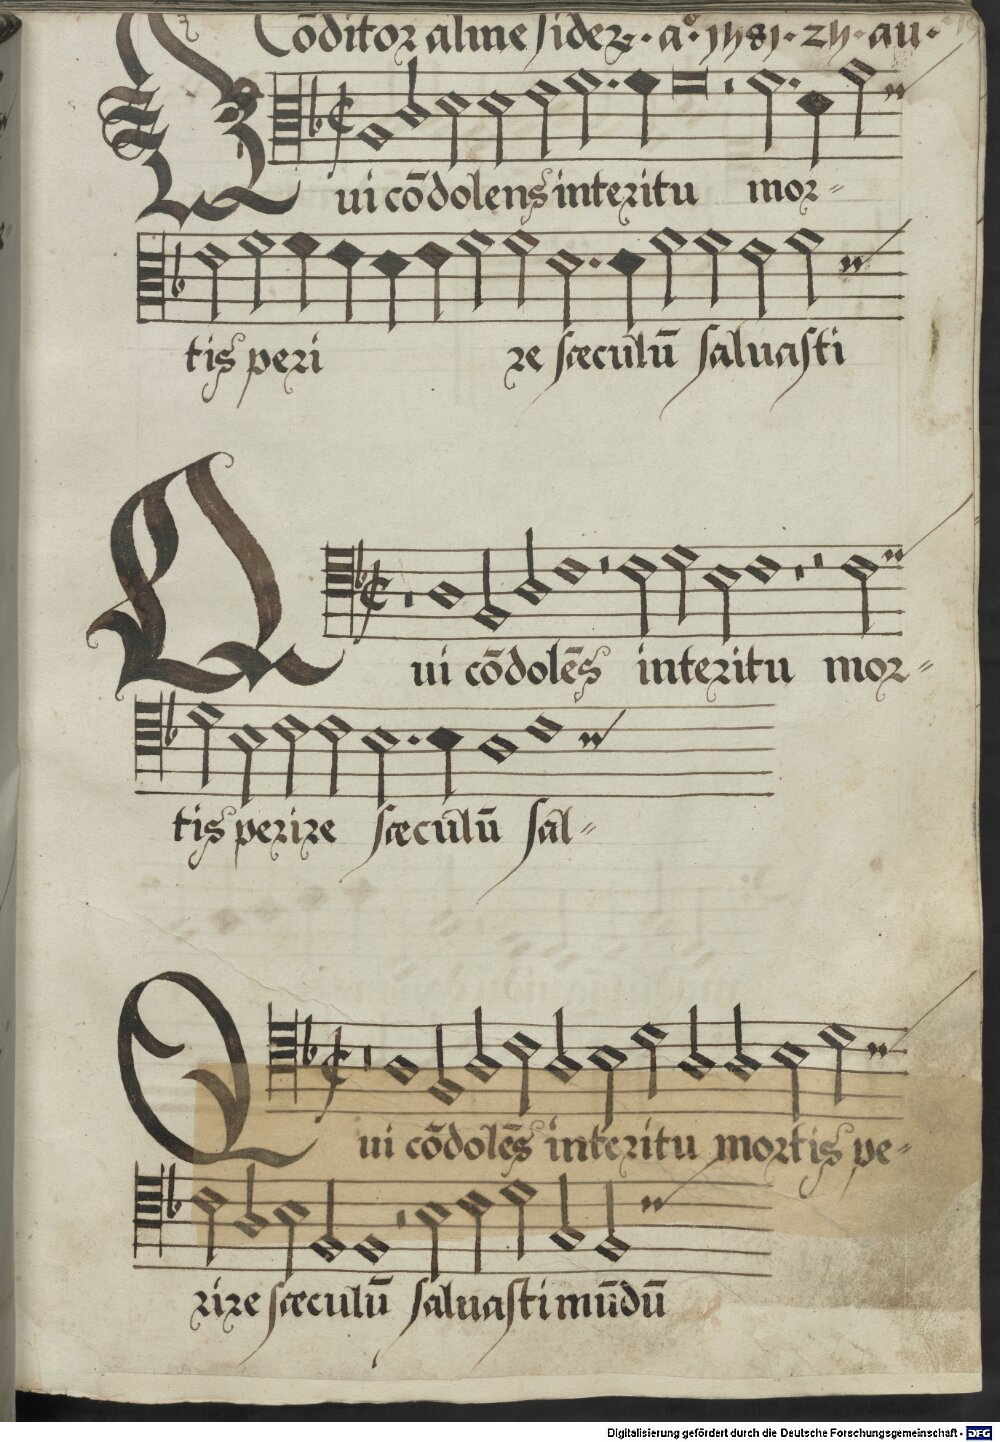 Cōditor alme sideꝝ·
ui cōdolens interitu mor⸗
tis peri re sæculū saluasti
ui cōdolēs interitu mor⸗
tis perire sæculū sal⸗
Qui cōdolēs interitu mortis pe⸗
rire sæculū saluasti mūdū
Digitalisierung gefördert durch die Deutsche Forschungsgemeinschaft - DFG